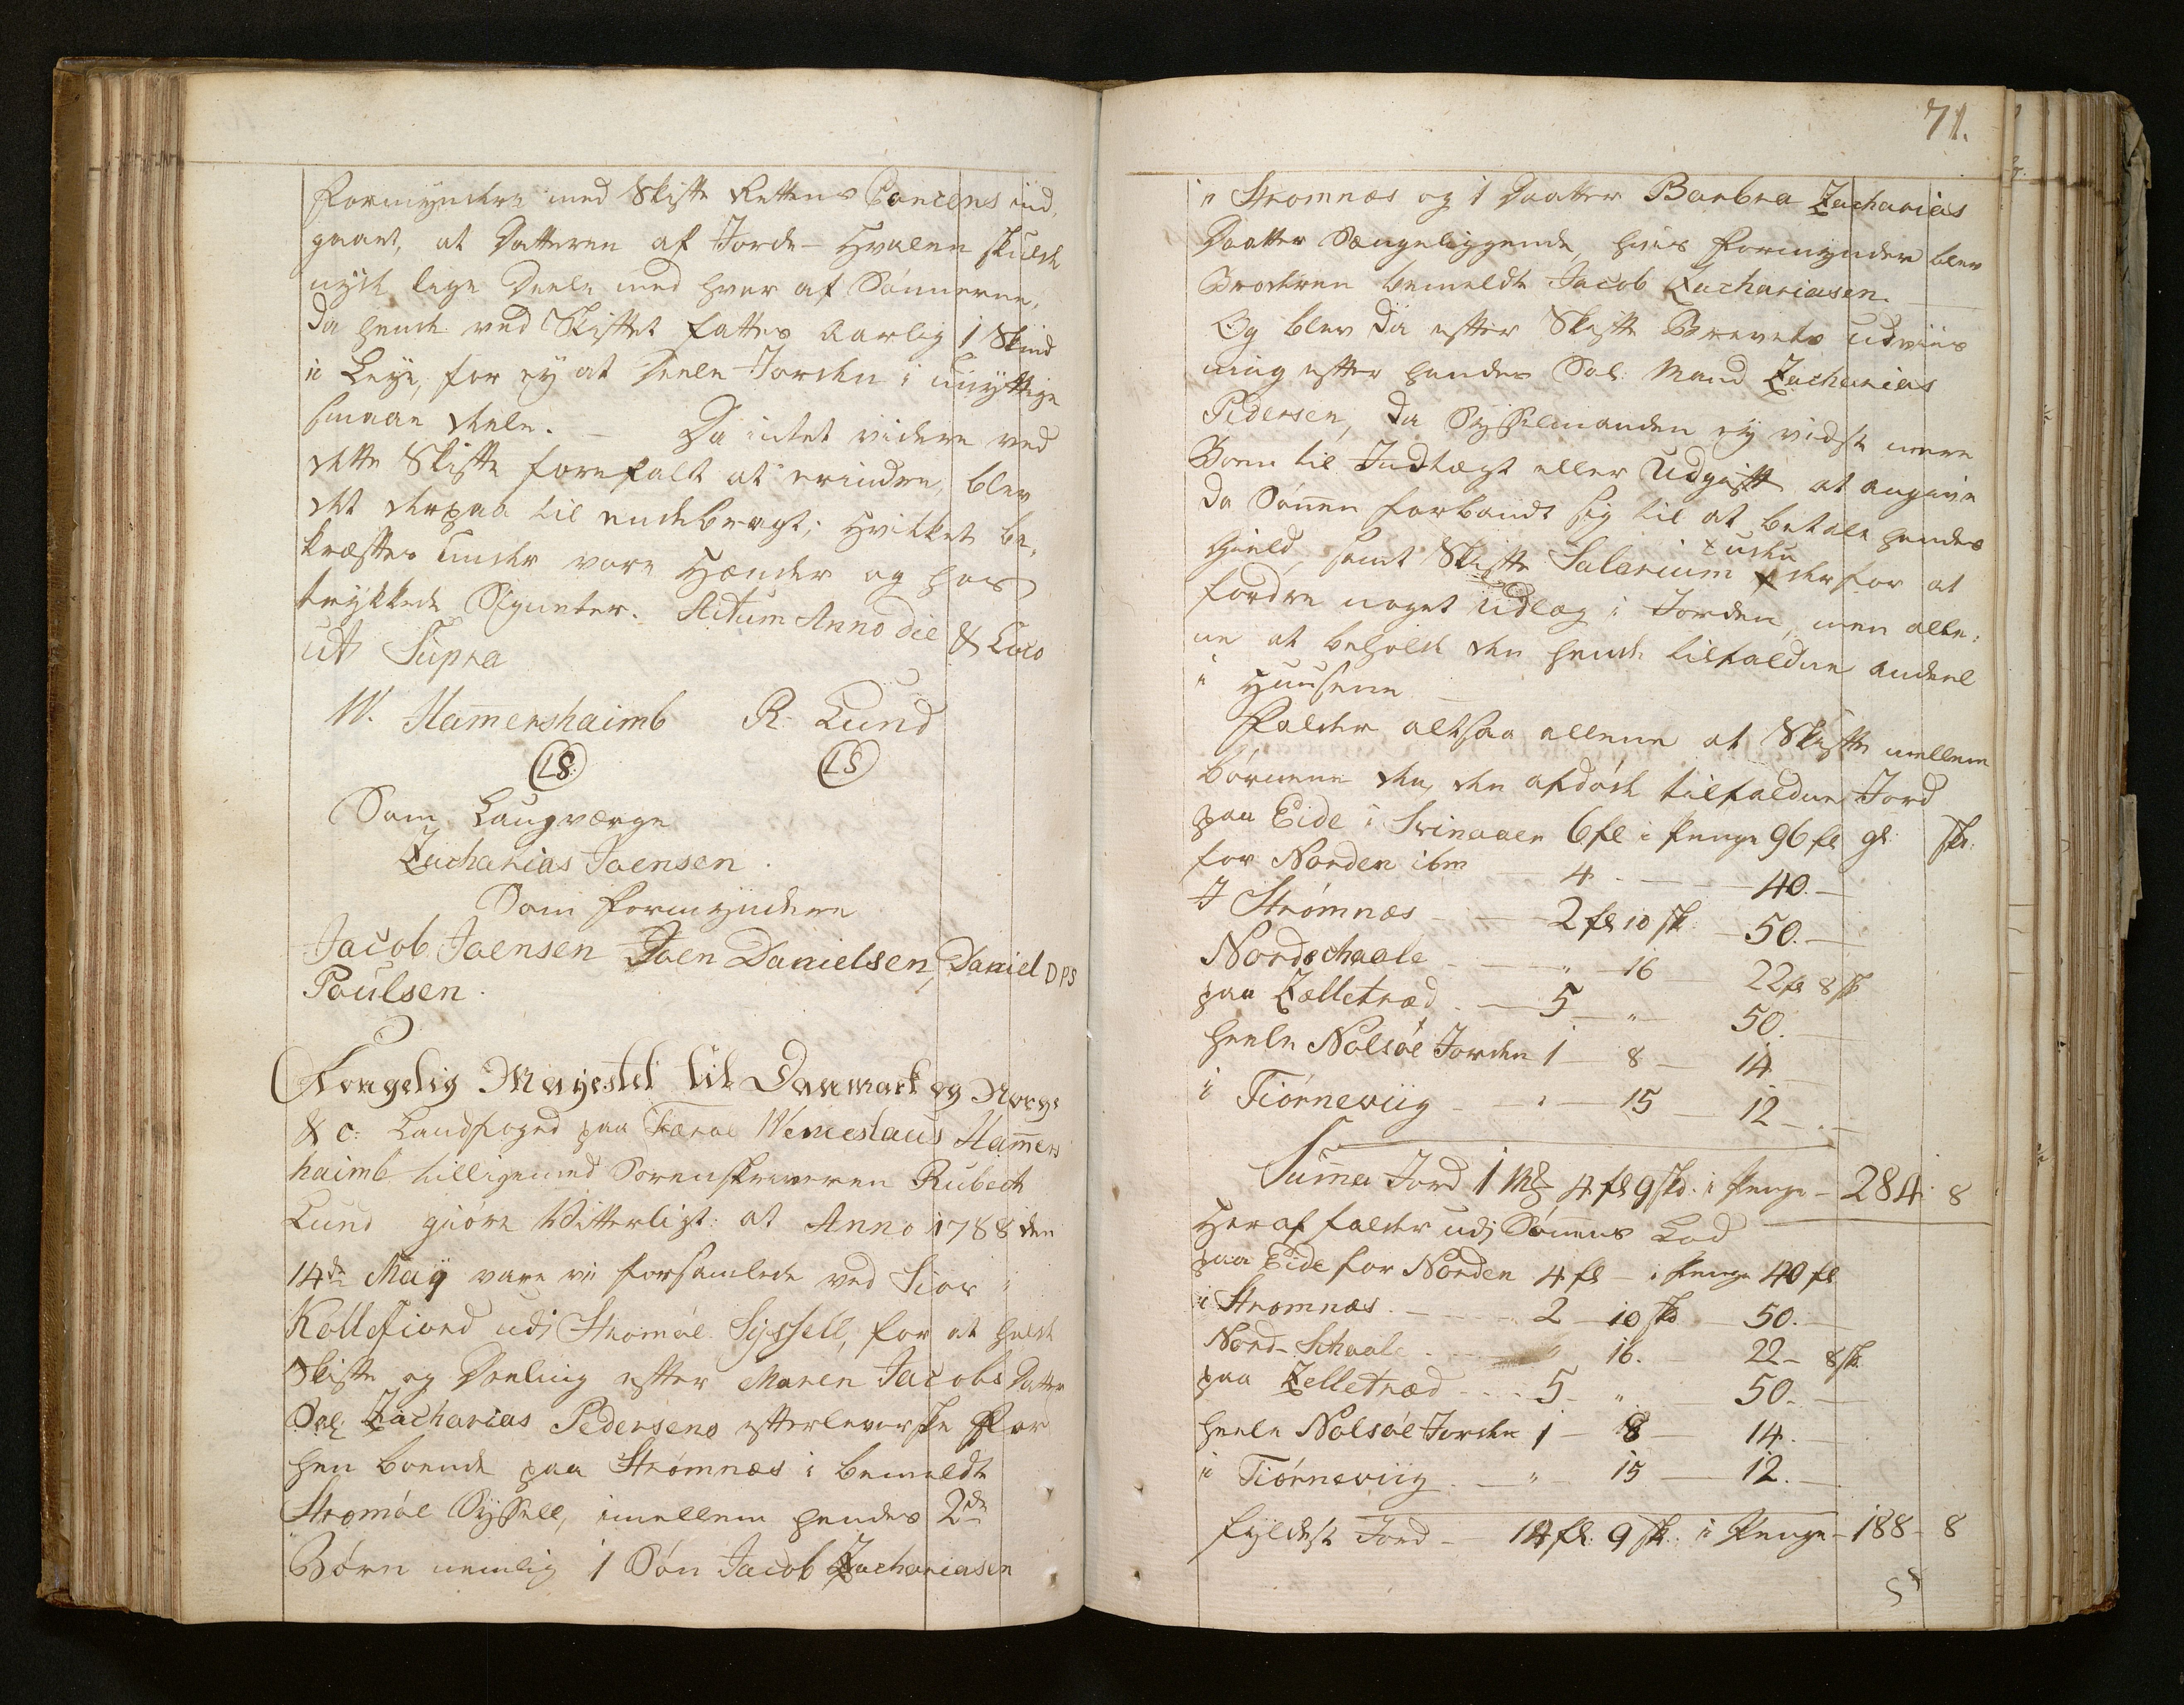 Formyndere med Skifte Rettens Concens ind,
gaaet, at Datteren af Jorde-Hvalen skulde
nyde lige Deele med hver af Sønnerne,
da hende ved Skiftet fattes Aarlig 1 Skind
i Leye, for ey at Deele Jorden i unyttige
smaae deele. — Da intet videre ved
dette Skifte forefalt at erindre, blev
det derpaa til endebragt; Hvilket be,
kræftes under vore Hænder og hos
trykkede Signeter. Actum Anno die & Loco
ut Supra
W. Ham̅ershaimb R. Lund
LS. LS
Som Laugværge
Zacharias Joensen.
Som Formyndere
Jacob Joensen Joen Danielsen, Daniel DPS
Poulsen.
Kongelig Mayestet til Danmark og Norge
& c: Landfoged paa Færøe Wenceslaus Ham̅ers
haimb tilligemed Sorenskriveren Rubech
Lund giøre Witterligt: at Anno 1788 den
14de Maÿ vare vii forsamlede ved Sior i
Kollefiord udj Strømøe Syssell, for at holde
Skifte og Deeling efter Maren Jacobs Datter
Sal: Zacharias Pedersens efterleverske For
hen boende paa Strømnæs i bemeldte
Strømøe Syssell, imellem hendes 2de
Børn nemlig 1 Søn Jacob Zachariasen
71.
i Strømnæs og 1 Daatter Barbra Zacharias
Daatter Sængeliggende, hvis Formynder blev
Broderen bemeldte Jacob Zachariasen.
Og blev da efter Skifte Brevets udviis
ning efter hendes Sal: Mand Zacharias
Pedersen, da Sysselmanden ey vidste mere
Boen til Indtægt eller Udgift at angive
da Søn̅en forbandt sig til at betale hendes
Gield, samt Skifte Salarium uden derfor at
fordre noget Udlæg i Jorden, men alle:
ne at beholde den hende tilfaldne andeel
i Huusene
Falder altsaa allene at Skifte mellem
børnene den, den afdøde tilfaldne Jord
paa Eide i Svinaaen 6 fl i Penge 96 fl gl: sk:
for Norden ibm — 4 . — 40. —
I Strømnæs — 2 fl 10 sk: — 50. —
Nordschaale — „ — 16 — 22 fl 8 sk
paa Zelletræd — 5 — „ — 50. —
heele Nolsøe Jorden 1 — 8 — 14 —
i Tiørneviig — „ — 15 — 12 — . —
Sum̅a Jord 1 Mk 4 fl 9 skd. i Penge — 284. 8
Heraf falder udj Søn̅ens Lod
paa Eide for Norden 4 fl — i Penge 40 fl
i Strømnæs. — 2 — 10 skd — 50. —
Nord-Schaale — 16. — 22 — 8 sk
paa Zelletræd — 5 — „ — 50. —
heele Nolsøe Jorden 1 — 8 — 14. —
i Tiørneviig. — „ — 15 — 12. —
fyldest Jord — 14 fl. 9 sk. i Penge — 188 — 8